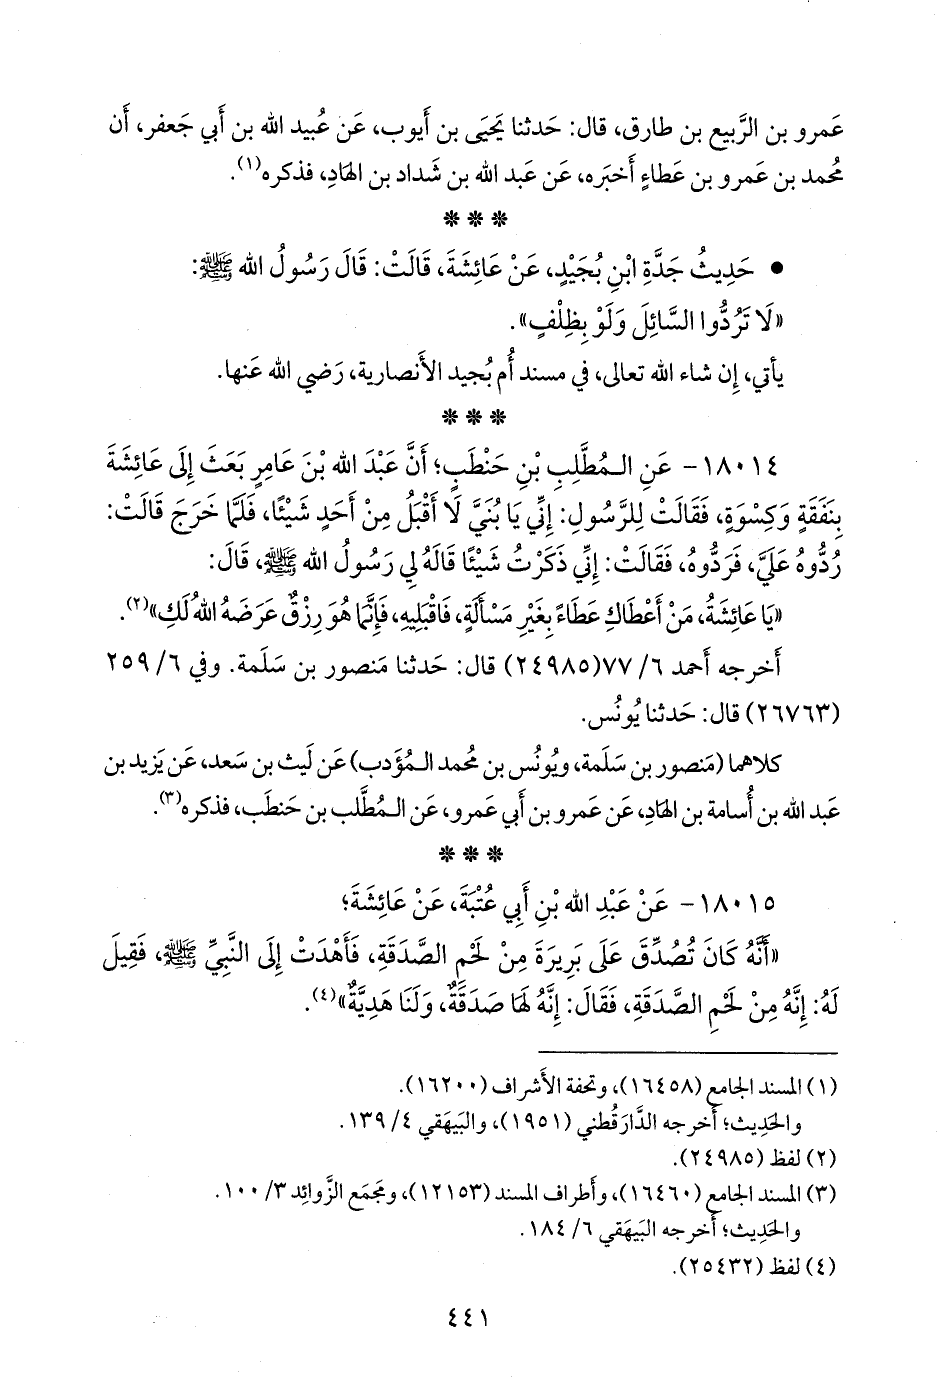 عَمرو بن الرَّبيع بن طارق، قال: حَدثنا يَحيَى بن أَيوب، عَن عُبيد الله بن أَبي جَعفر، أَن
مُحمد بن عَمرو بن عَطاءٍ أَخبَره، عَن عَبد الله بن شَداد بن الهَادِ، فذكره(١).
* * *
• حَدِيثُ جَدَّةِ ابْنِ بُجَيْدٍ، عَنْ عَائِشَةَ، قَالَتْ: قَالَ رَسُولُ الله ﷺ:
«لَا تَرُدُّوا السَّائِلَ وَلَوْ بِظِلْفٍ».
يأتي، إِن شاء الله تعالى، في مسند أُم بُجيد الأَنصارية، رَضي الله عَنها.
* * *
١٨٠١٤- عَنِ الـمُطَّلِبِ بْنِ حَنْطَبٍ؛ أَنَّ عَبْدَ الله بْنَ عَامِرٍ بَعَثَ إِلَى عَائِشَةَ
بِنَفَقَةٍ وَكِسْوَةٍ، فَقَالَتْ لِلرَّسُولِ: إِنِّي يَا بُنَيَّ لَا أَقْبَلُ مِنْ أَحَدٍ شَيْئًا، فَلَمَّا خَرَجَ قَالَتْ:
رُدُّوهُ عَلَيَّ، فَرَدُّوهُ، فَقَالَتْ: إِنِّي ذَكَرْتُ شَيْئًا قَالَهُ لِي رَسُولُ الله ﷺ، قَالَ:
«يَا عَائِشَةُ، مَنْ أَعْطَاكِ عَطَاءً بِغَيْرِ مَسْأَلَةٍ، فَاقْبَلِيهِ، فَإِنَّمَا هُوَ رِزْقٌ عَرَضَهُ اللهُ لَكِ»(٢).
أَخرجه أَحمد ٦/ ٧٧(٢٤٩٨٥) قال: حَدثنا مَنصور بن سَلَمة. وفي ٦/ ٢٥٩
(٢٦٧٦٣) قال: حَدثنا يُونُس.
كلاهما (مَنصور بن سَلَمة، ويُونُس بن مُحمد الـمُؤَدب) عَن لَيث بن سَعد، عَن يَزيد بن
عَبد الله بن أُسامة بن الهَادِ، عَن عَمرو بن أَبي عَمرو، عَن الـمُطَّلب بن حَنطَب، فذكره(٣).
* * *
١٨٠١٥- عَنْ عَبْدِ الله بْنِ أَبِي عُتْبَةَ، عَنْ عَائِشَةَ؛
«أَنَّهُ كَانَ تُصُدِّقَ عَلَى بَرِيرَةَ مِنْ لَحْمِ الصَّدَقَةِ، فَأَهْدَتْ إِلَى النَّبِيِّ ﷺ، فَقِيلَ
لَهُ: إِنَّهُ مِنْ لَحْمِ الصَّدَقَةِ، فَقَالَ: إِنَّهُ لَهَا صَدَقَةٌ، وَلَنَا هَدِيَّةٌ»(٤).
(١) المسند الجامع (١٦٤٥٨)، وتحفة الأَشراف (١٦٢٠٠).
والحَدِيث؛ أَخرجه الدَّارَقُطني (١٩٥١)، والبَيهَقي ٤/ ١٣٩.
(٢) لفظ (٢٤٩٨٥).
(٣) المسند الجامع (١٦٤٦٠)، وأَطراف المسند (١٢١٥٣)، ومَجمَع الزَّوائِد ٣/ ١٠٠.
والحَدِيث؛ أَخرجه البَيهَقي ٦/ ١٨٤.
(٤) لفظ (٢٥٤٣٢).
٤٤١